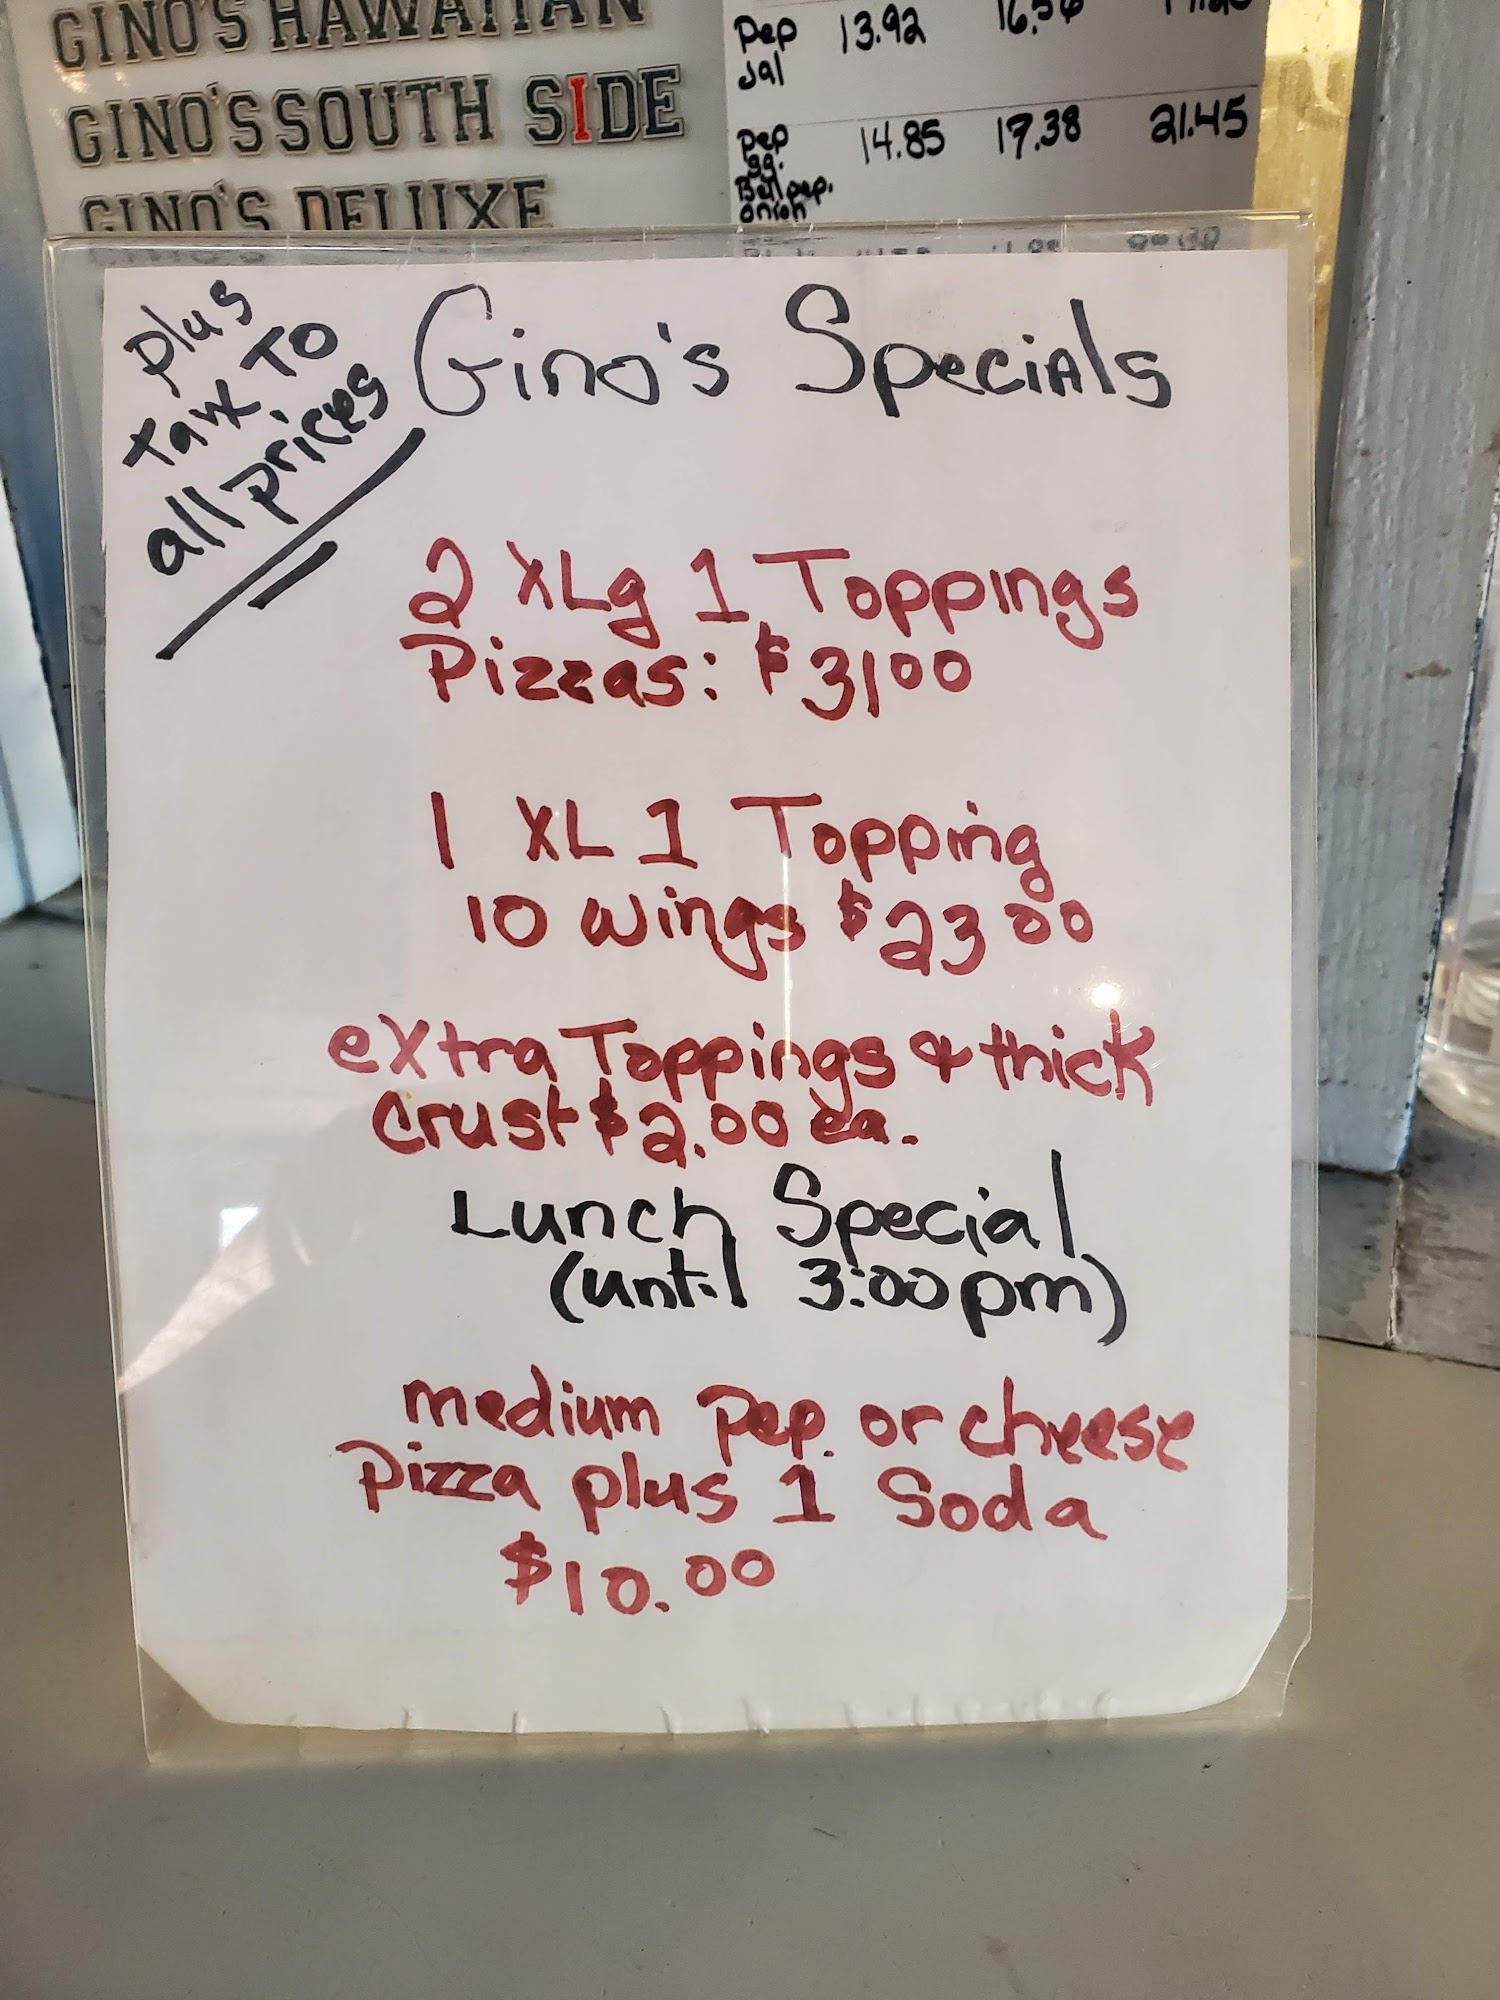 GINO'S HAWAIIAN
GINO'S SOUTH SIDE
GINO'S DELUXE
Pep 13.92 16.56
Jal
Pep 14.85 17.38 21.45
gg.
Bell pep.
onion
plus
tax TO
all prices
Gino's Specials
2 XLg 1 Toppings
Pizzas: $3100
1 XL 1 Topping
10 wings $23 00
extra Toppings & thick
crust $2.00 ea.
Lunch Special
(until 3:00pm)
medium pep. or cheese
pizza plus 1 Soda
$10.00